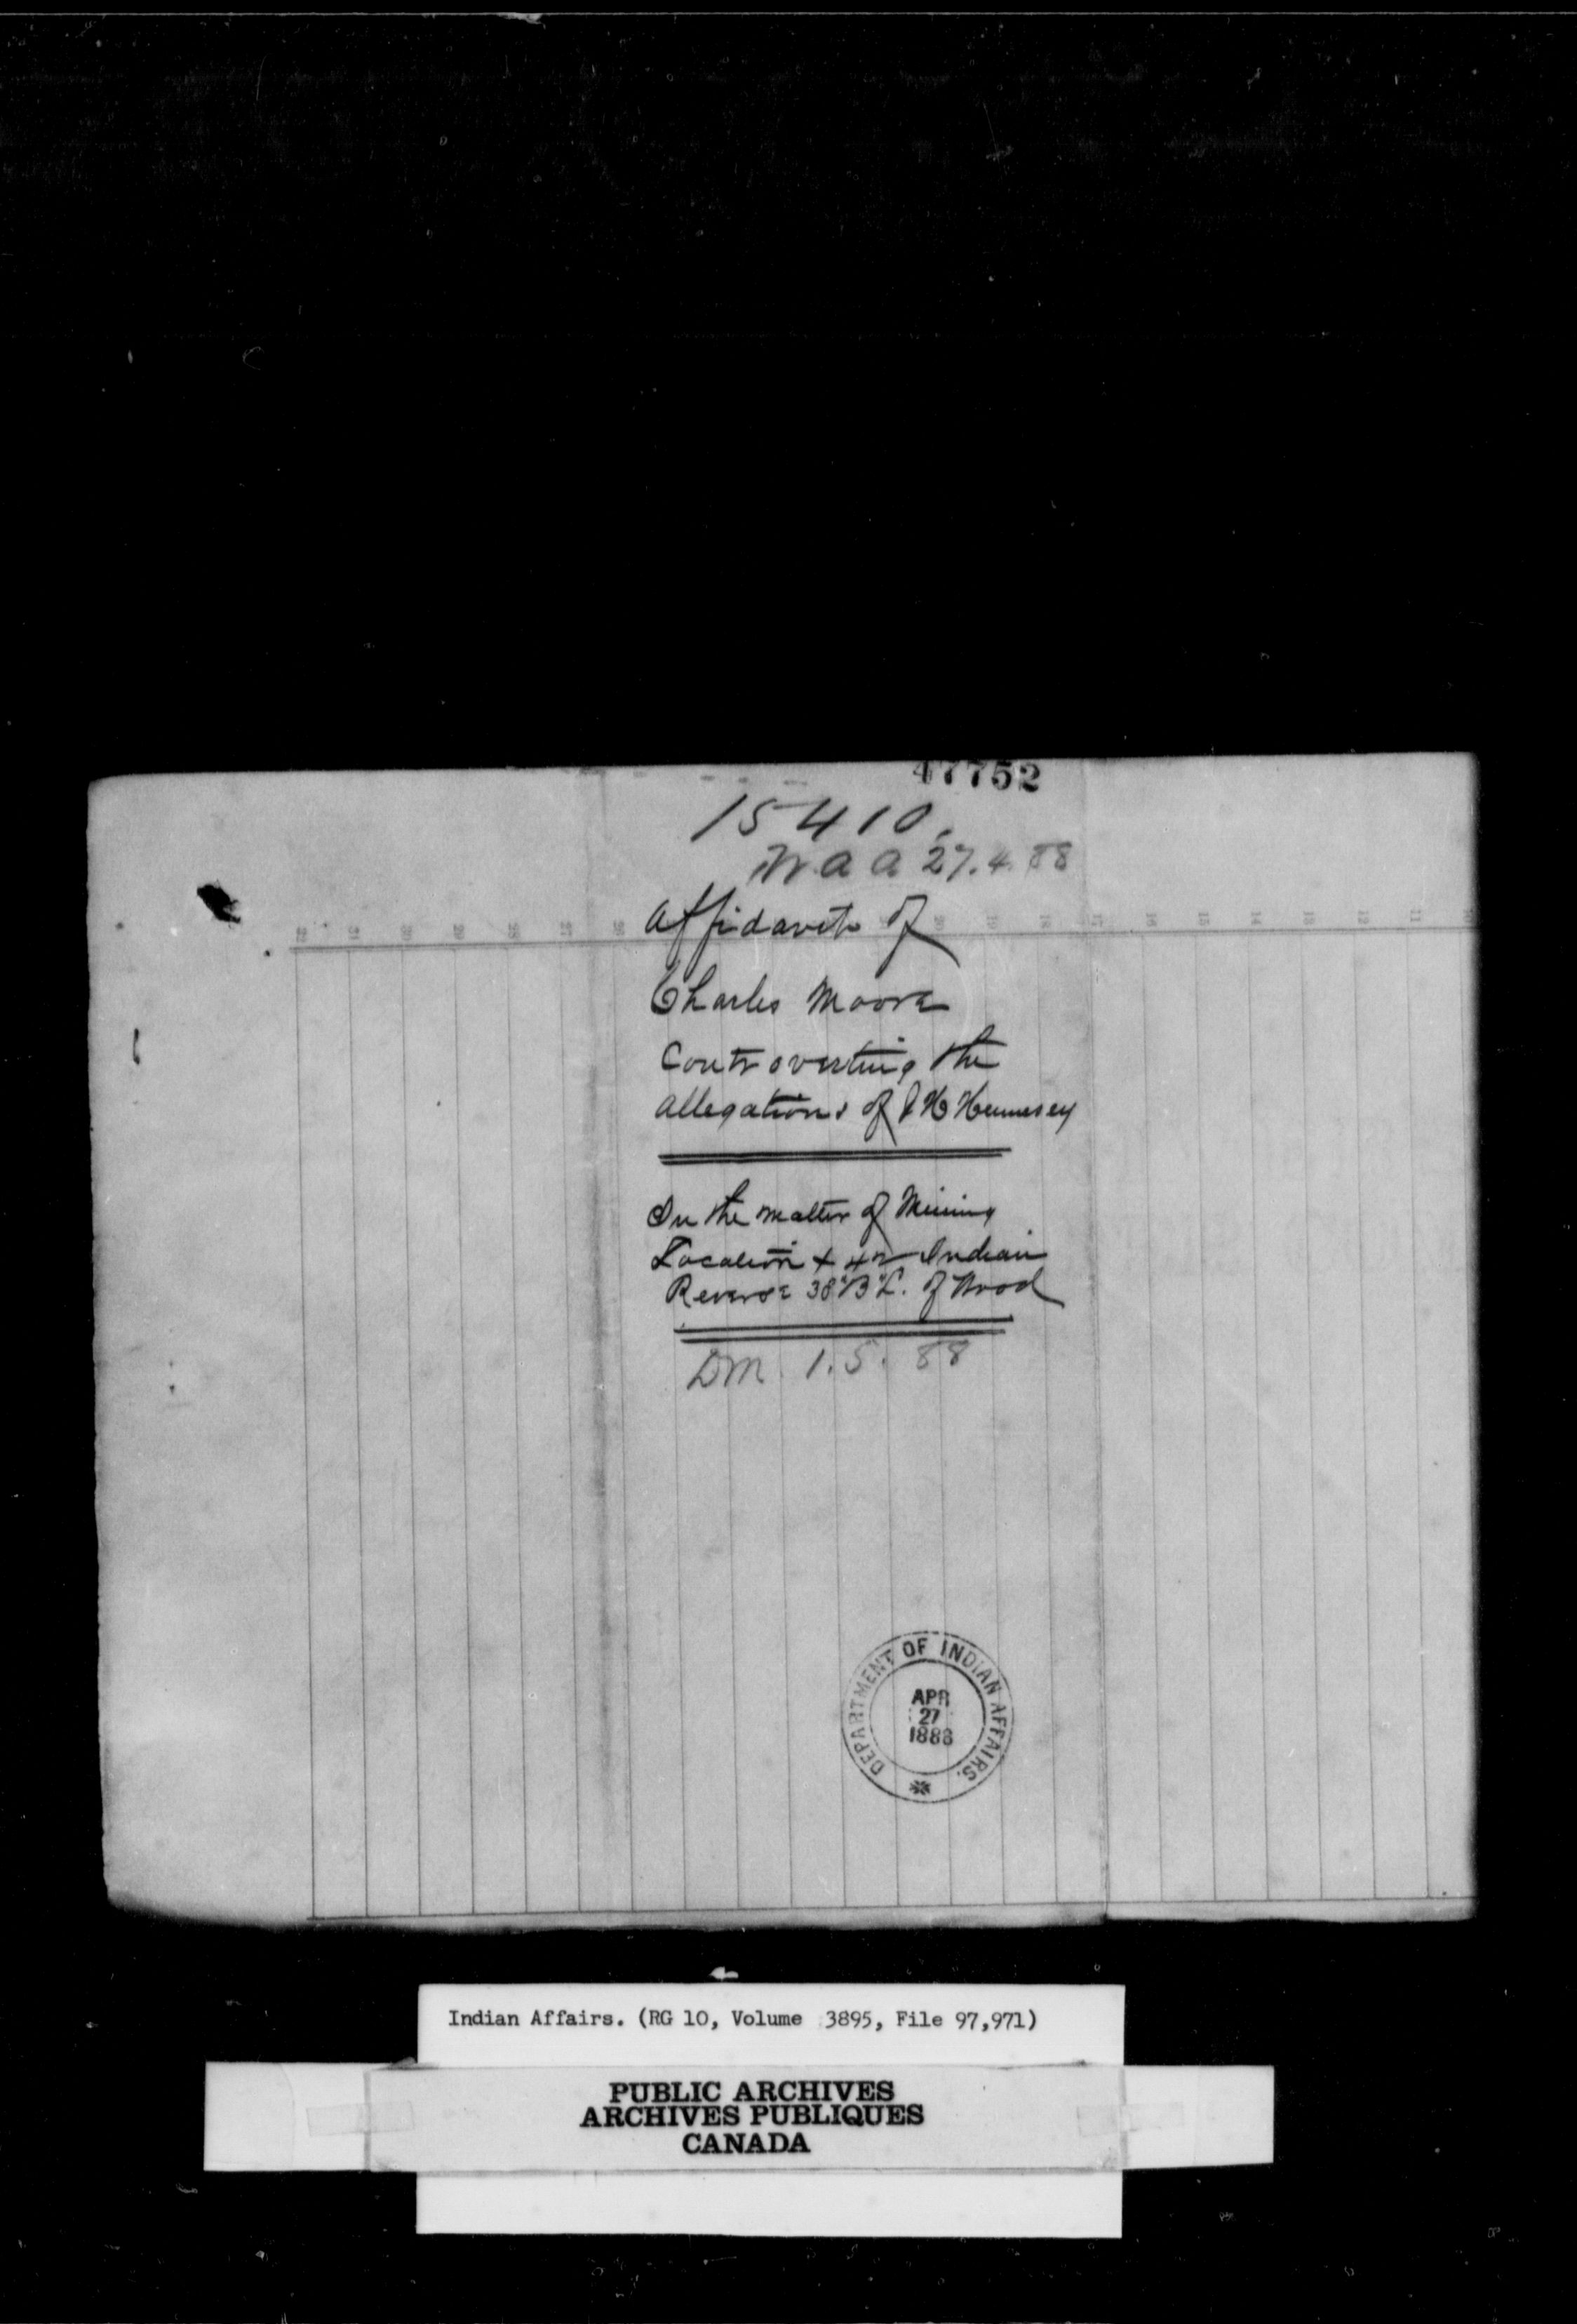 47752
15410.
W.a a 27.4.88
Affidavit of
Charles Moore
Controverting the
allegations of J H Hennesey
In the matter of Mining
Location X 42 Indian
Reverse 38"B" L. of Wood
DM. 1.5.88
DEPARTMENT OF INDIAN AFFAIRS.
APR
27
1888
Indian Affairs. (RG 10, Volume 3895, File 97,971)
PUBLIC ARCHIVES
ARCHIVES PUBLIQUES
CANADA